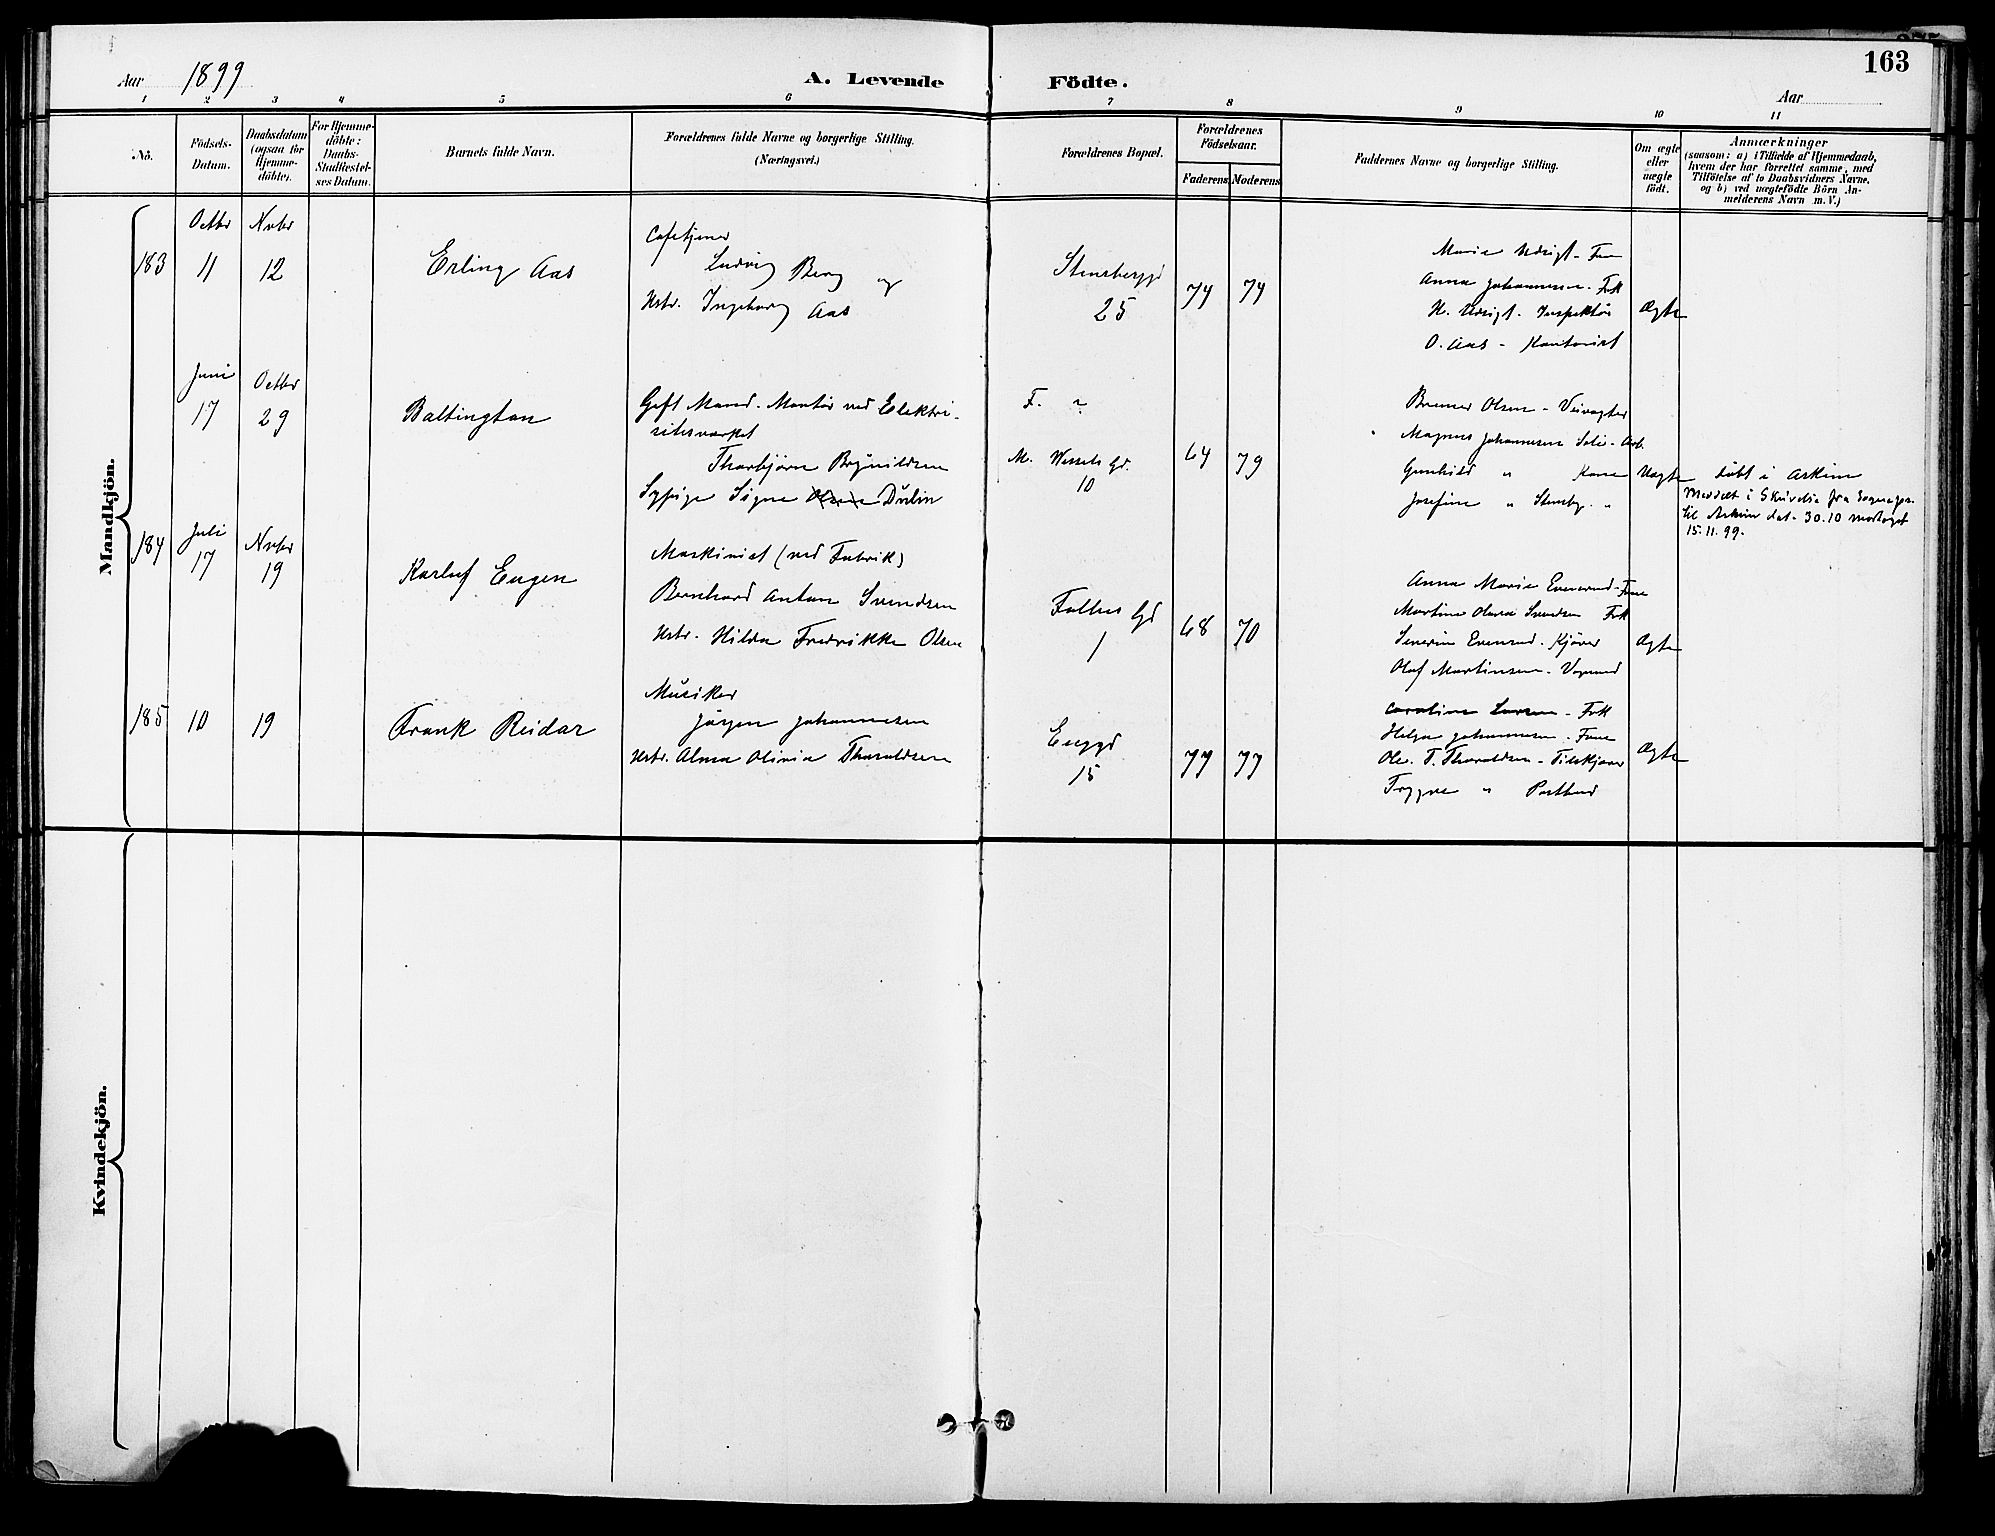 163
Aar 1899
A. Levende Födte.
Aar
1 2 3 4 5 6 7 8 9 10 11
No.
Födsels-
Datum.
Daabsdatum
(ogsaa for
Hjemme-
döbte).
For Hjemme-
döbte:
Daabs-
Stadfæstel-
ses Datum.
Barnets fulde Navn.
Forældrenes fulde Navne og borgerlige Stilling.
(Næringsvei.)
Forældrenes Bopæl.
Forældrenes
Födselsaar.
Faderens Moderens
Faddernes Navne og borgerlige Stilling.
Om ægte
eller
uægte
födt.
Anmærkninger
(saasom: a) i Tilfælde af Hjemmedaab,
hvem der har forrettet samme, med
Tilföielse af to Daabsvidners Navne,
og b) ved uægtefödte Börn An-
melderens Navn m. V.)
Mandkjön.
Octbr Novbr
183 11 12
Erling Aas
Cafetjener
Ludvig Berg og
Hstr. Ingeborg Aas
Stensberggd
25
74 74
Marie Udsigt - Frue
Anna Johannesen - Frk
H. Udsigt - Inspektör
O. Aas - Kontorist
Ægte
Juni Octbr
17 29
Baltington
Gift Mand. Montör ved Elektri-
sitetsværket
Thorbjörn Brynildsen
Sypige Signe Olsen Dulin
F. ?
M. Wessels Gd.
10
64 79
Brenner Olsen - Veivogter
Magnus Johannesen Solie - Arb.
Gunhild " Kone
Josefine " Stensby "
Uægte
Döbt i Askim
Meddelt i Skrivelse fra Sognepr.
til Askim dat. 30.10 modtaget
15.11.99.
184
Juli Novbr
17 19
Karluf Eugen
Maskinist (ved Fabrik)
Bernhard Anton Svendsen
Hstr. Hilda Fredrikke Olsen
Falbes Gd
1
68 70
Anna Marie Evensrud - Frue
Martine Olava Svendsen Frk
Severin Evensrud - Kjörer
Olaf Martinsen - Vognmd
Ægte
185 10 19
Frank Reidar
Musiker
Jörgen Johannesen
Hstr. Alma Olivia Tharaldsen
Enggd
15
77 77
Caroline Larsen - Frk
Helga Johannesen - Frue
Ole. T. Tharaldsen - Tilskjærer
Trygve " Postbud
Ægte
Kvindekjön.